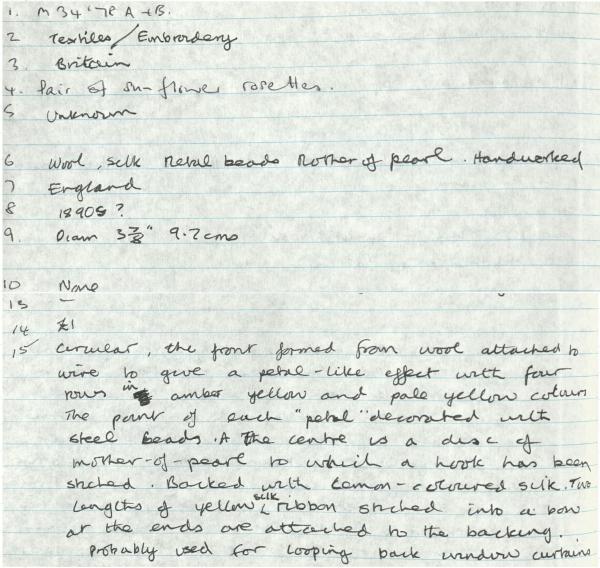 1. M 34 '78 A + B.
2 Textiles / Embroidery
3 Britain
4. Pair of sun-flower rosettes.
5 Unknown
6 Wool, silk Metal beads Mother of pearl. Handworked
7 England
8 1890s ?
9. Diam 3 7/8" 9.7 cms
10 None
13 —
14 £1
15 Circular, the front formed from wool attached to
wire to give a petal-like effect with four
rows in amber yellow and pale yellow colours
The point of each "petal" decorated with
steel beads. A the centre is a disc of
mother-of-pearl to which a hook has been
stiched. Backed with lemon-coloured silk. Two
lengths of yellow silk ribbon stiched into a bow
at the ends are attached to the backing.
Probably used for looping back window curtains